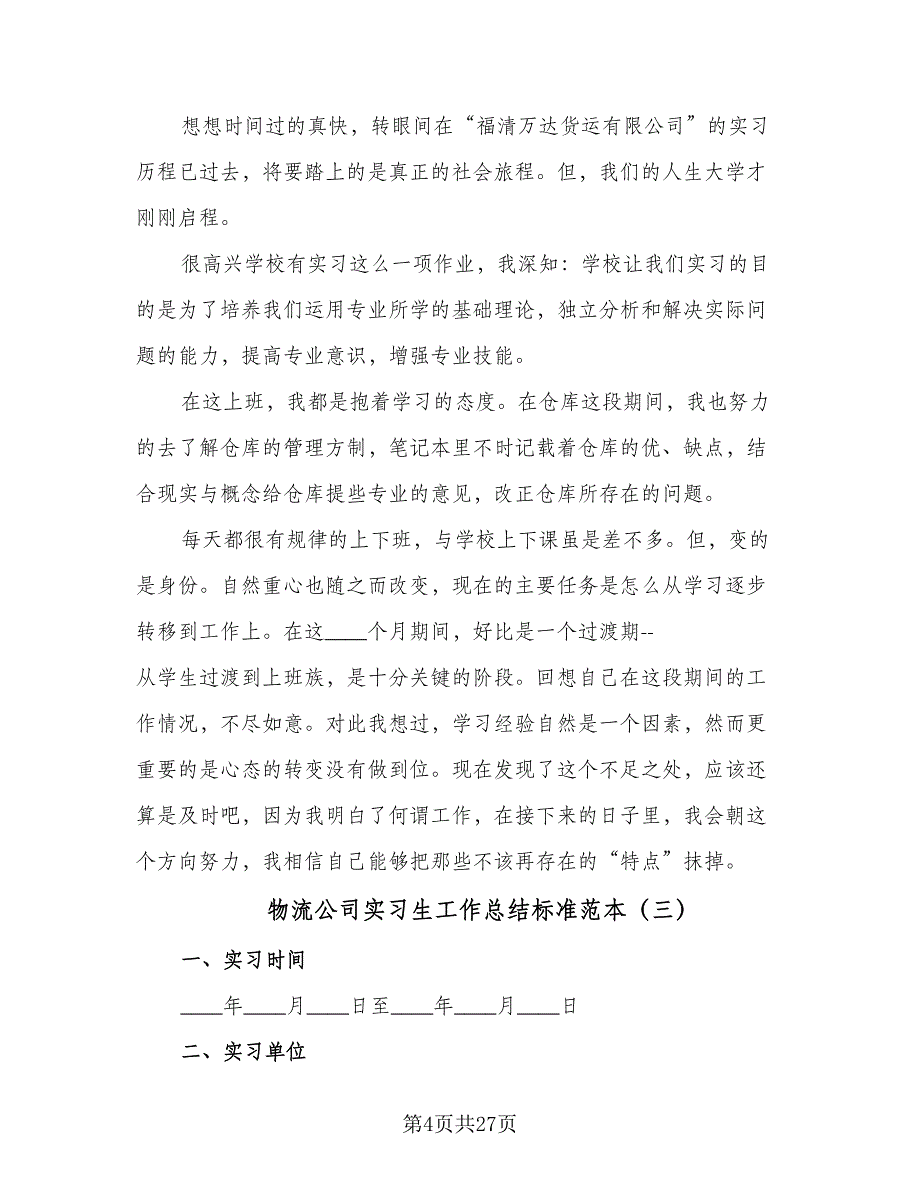 想想时间过的真快，转眼间在“福清万达货运有限公司”的实习
历程已过去，将要踏上的是真正的社会旅程。但，我们的人生大学才
刚刚启程。
很高兴学校有实习这么一项作业，我深知：学校让我们实习的目
的是为了培养我们运用专业所学的基础理论，独立分析和解决实际问
题的能力，提高专业意识，增强专业技能。
在这上班，我都是抱着学习的态度。在仓库这段期间，我也努力
的去了解仓库的管理方制，笔记本里不时记载着仓库的优、缺点，结
合现实与概念给仓库提些专业的意见，改正仓库所存在的问题。
每天都很有规律的上下班，与学校上下课虽是差不多。但，变的
是身份。自然重心也随之而改变，现在的主要任务是怎么从学习逐步
转移到工作上。在这____个月期间，好比是一个过渡期--
从学生过渡到上班族，是十分关键的阶段。回想自己在这段期间的工
作情况，不尽如意。对此我想过，学习经验自然是一个因素，然而更
重要的是心态的转变没有做到位。现在发现了这个不足之处，应该还
算是及时吧，因为我明白了何谓工作，在接下来的日子里，我会朝这
个方向努力，我相信自己能够把那些不该再存在的“特点”抹掉。
物流公司实习生工作总结标准范本（三）
一、实习时间
____年____月____日至____年____月____日
二、实习单位
第4页共27页